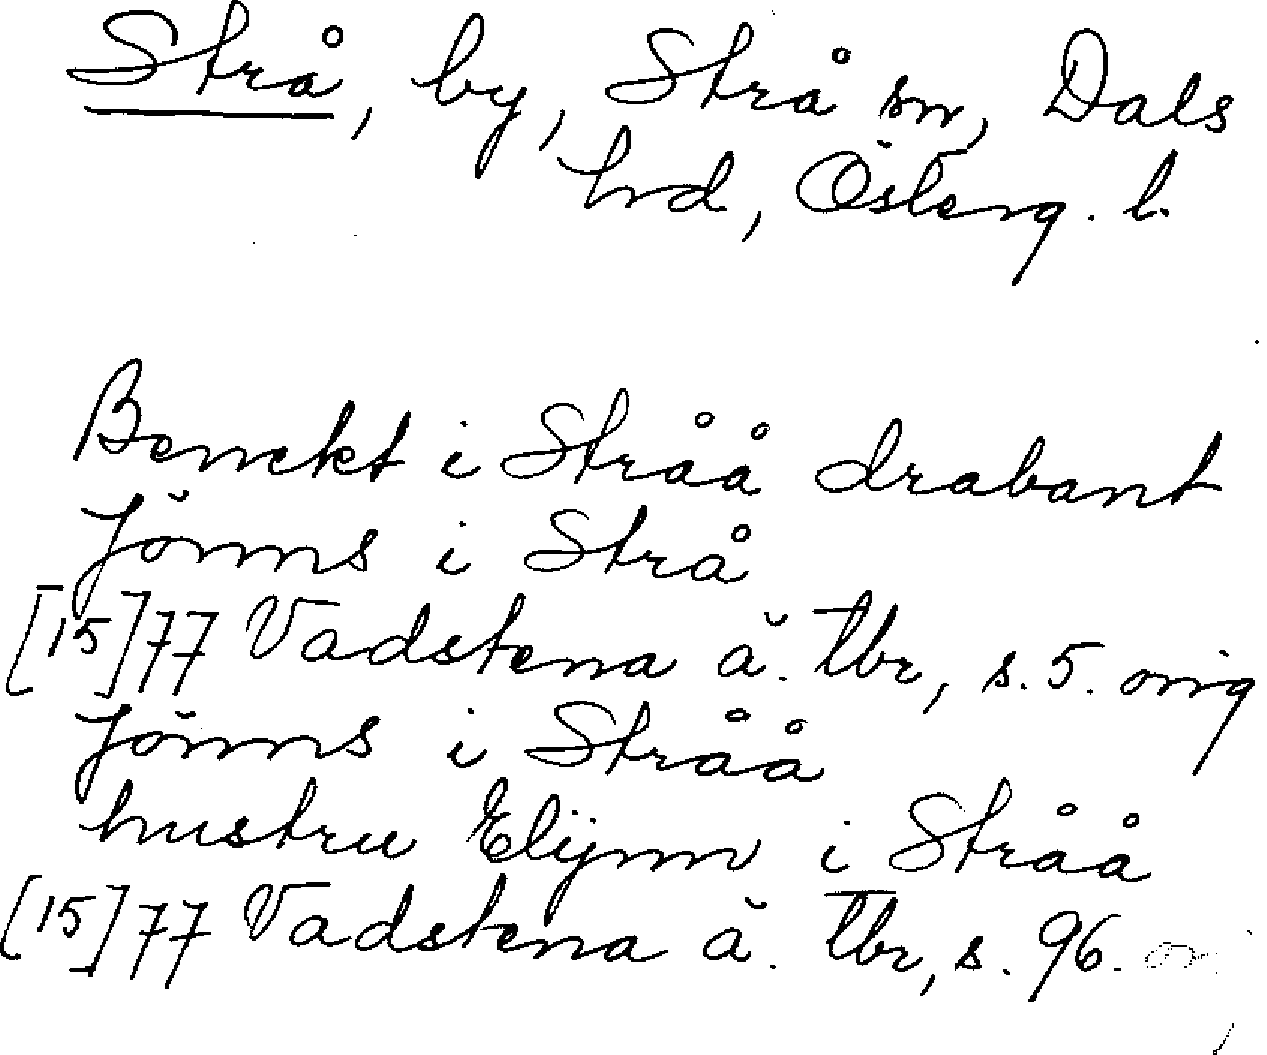 Strå, by, Strå sn, Dals
hd, Österg. l.
Benckt i Stråå drabant
Jönns i Strå
[15]77 Vadstena ä. Tbr, s. 5. orig
Jönns i Stråå
hustru Elijnn i Stråå
[15]77 Vadstena ä. Tbr, s. 96.